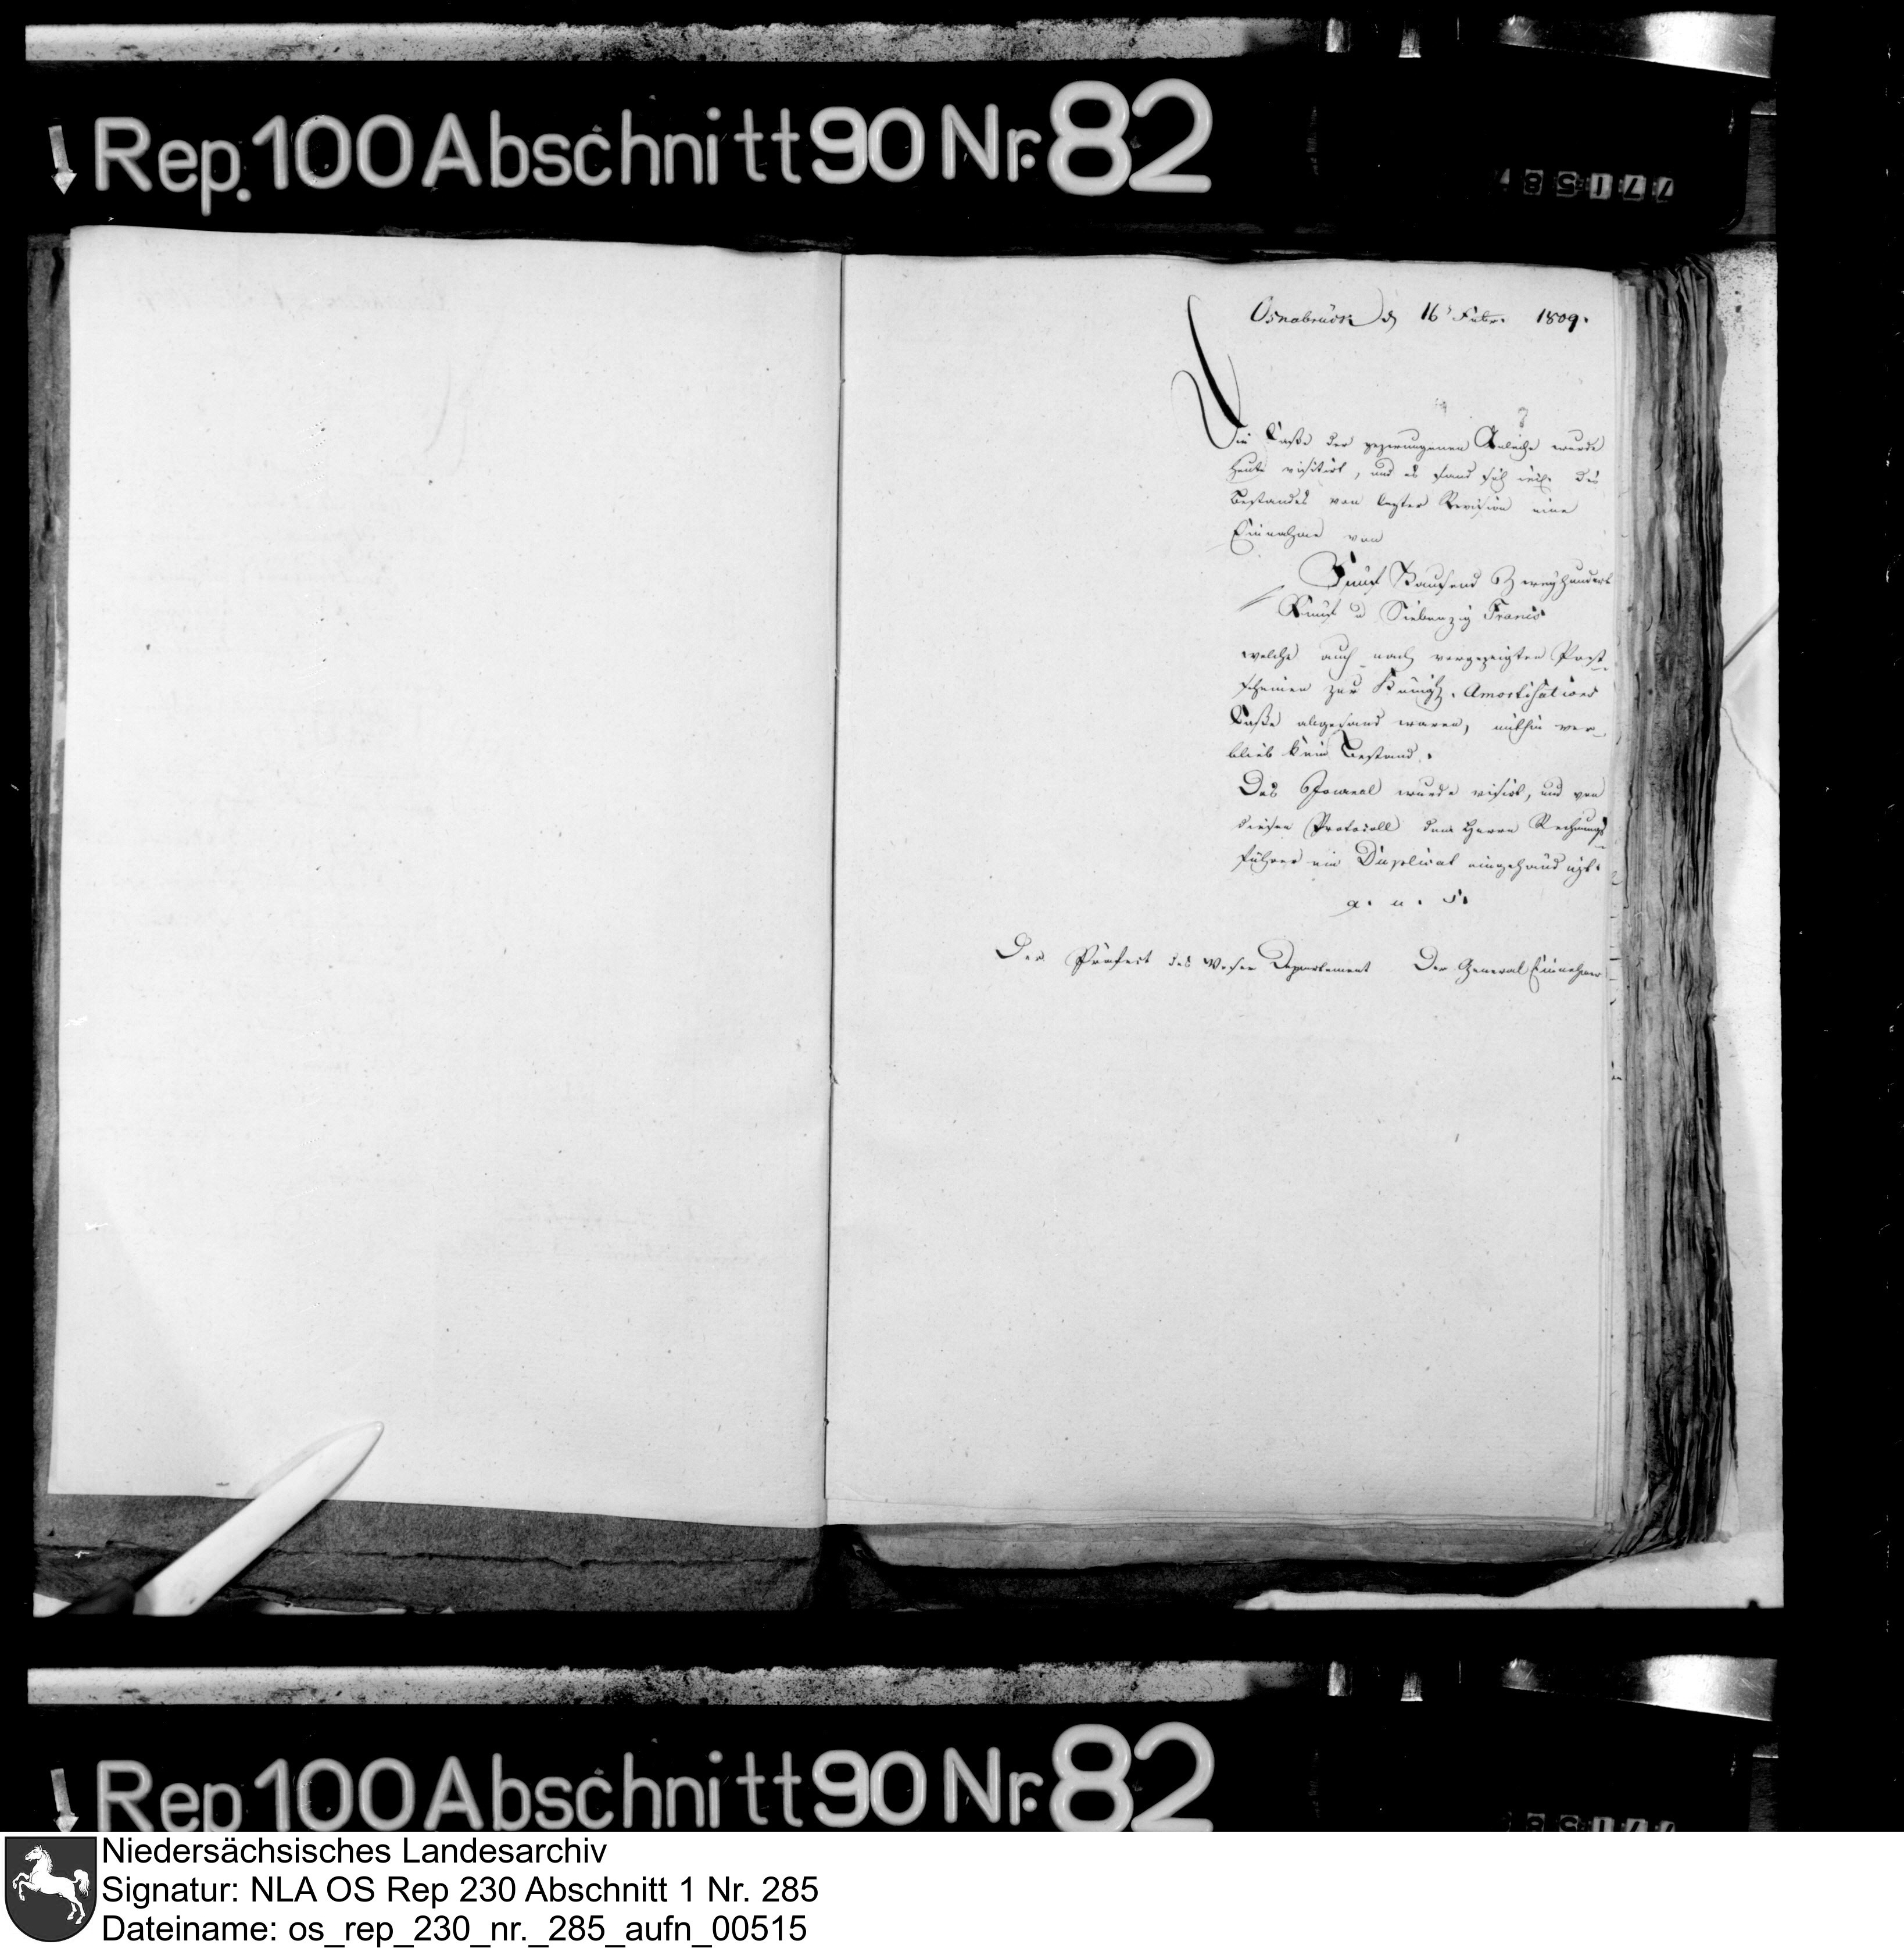 Rep. 100 Abschnitt 90 Nr. 82
Osnabrück d 16 Febr. 1809.
Die Casse der gezwungenen Anleihe wurde
heute visitirt, und es fand sich incl. des
Bestandes von letzter Revision eine
Einnahme von
Fünf Tausend Zweyhundert
Fünf u Siebenzig Francs
welche auch nach vorgezeigten Post-
scheinen zur Königl. Amortisations
Casse abgesand waren, mithin ver-
blieb kein Bestand.
Das Journal wurde visirt, und von
diesen Protocoll dem Herrn Rechnungs-
führer ein Duplicat eingehändigt.
a. u. s.
Der Präfect des Weser Departement Der General Einnehmer
Rep 100 Abschnitt 90 Nr. 82
Niedersächsisches Landesarchiv
Signatur: NLA OS Rep 230 Abschnitt 1 Nr. 285
Dateiname: os_rep_230_nr._285_aufn_00515